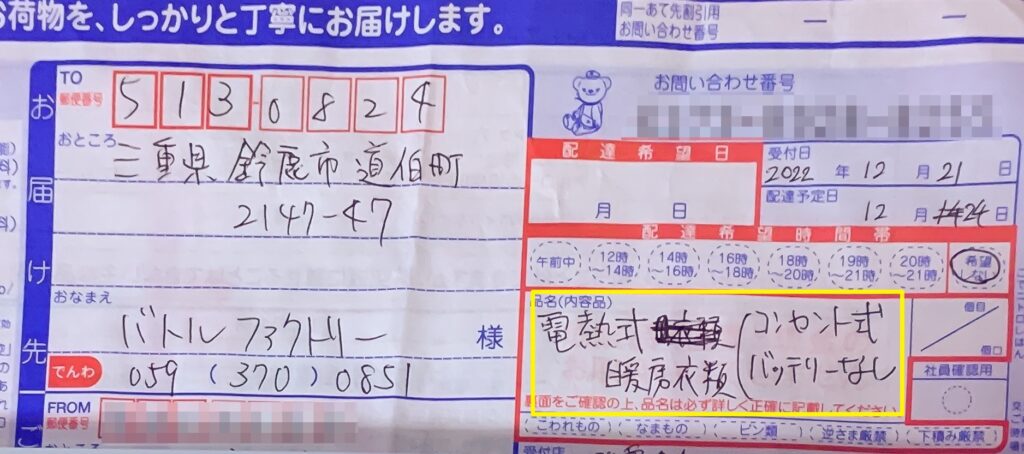 お荷物を、しっかりと丁寧にお届けします。
同一あて先割引用
お問い合わせ番号
お届け先
TO
郵便番号
513-0824
おところ
三重県鈴鹿市道伯町
2147-47
おなまえ
バトルファクトリー 様
でんわ
059 (370) 0851
FROM
郵便番号
お問い合わせ番号
配達希望日
月 日
受付日
2022 年 12 月 21 日
配達予定日
12 月 24 日
配達希望時間帯
午前中
12時~14時
14時~16時
16時~18時
18時~20時
19時~21時
20時~21時
希望しない
品名(内容品)
電熱式 (コンセント式
暖房衣類 バッテリーなし
裏面をご確認の上、品名は必ず詳しく正確に記載してください
個目
個口
社員確認用
こわれもの
なまもの
ビン類
逆さま厳禁
下積み厳禁
受付店